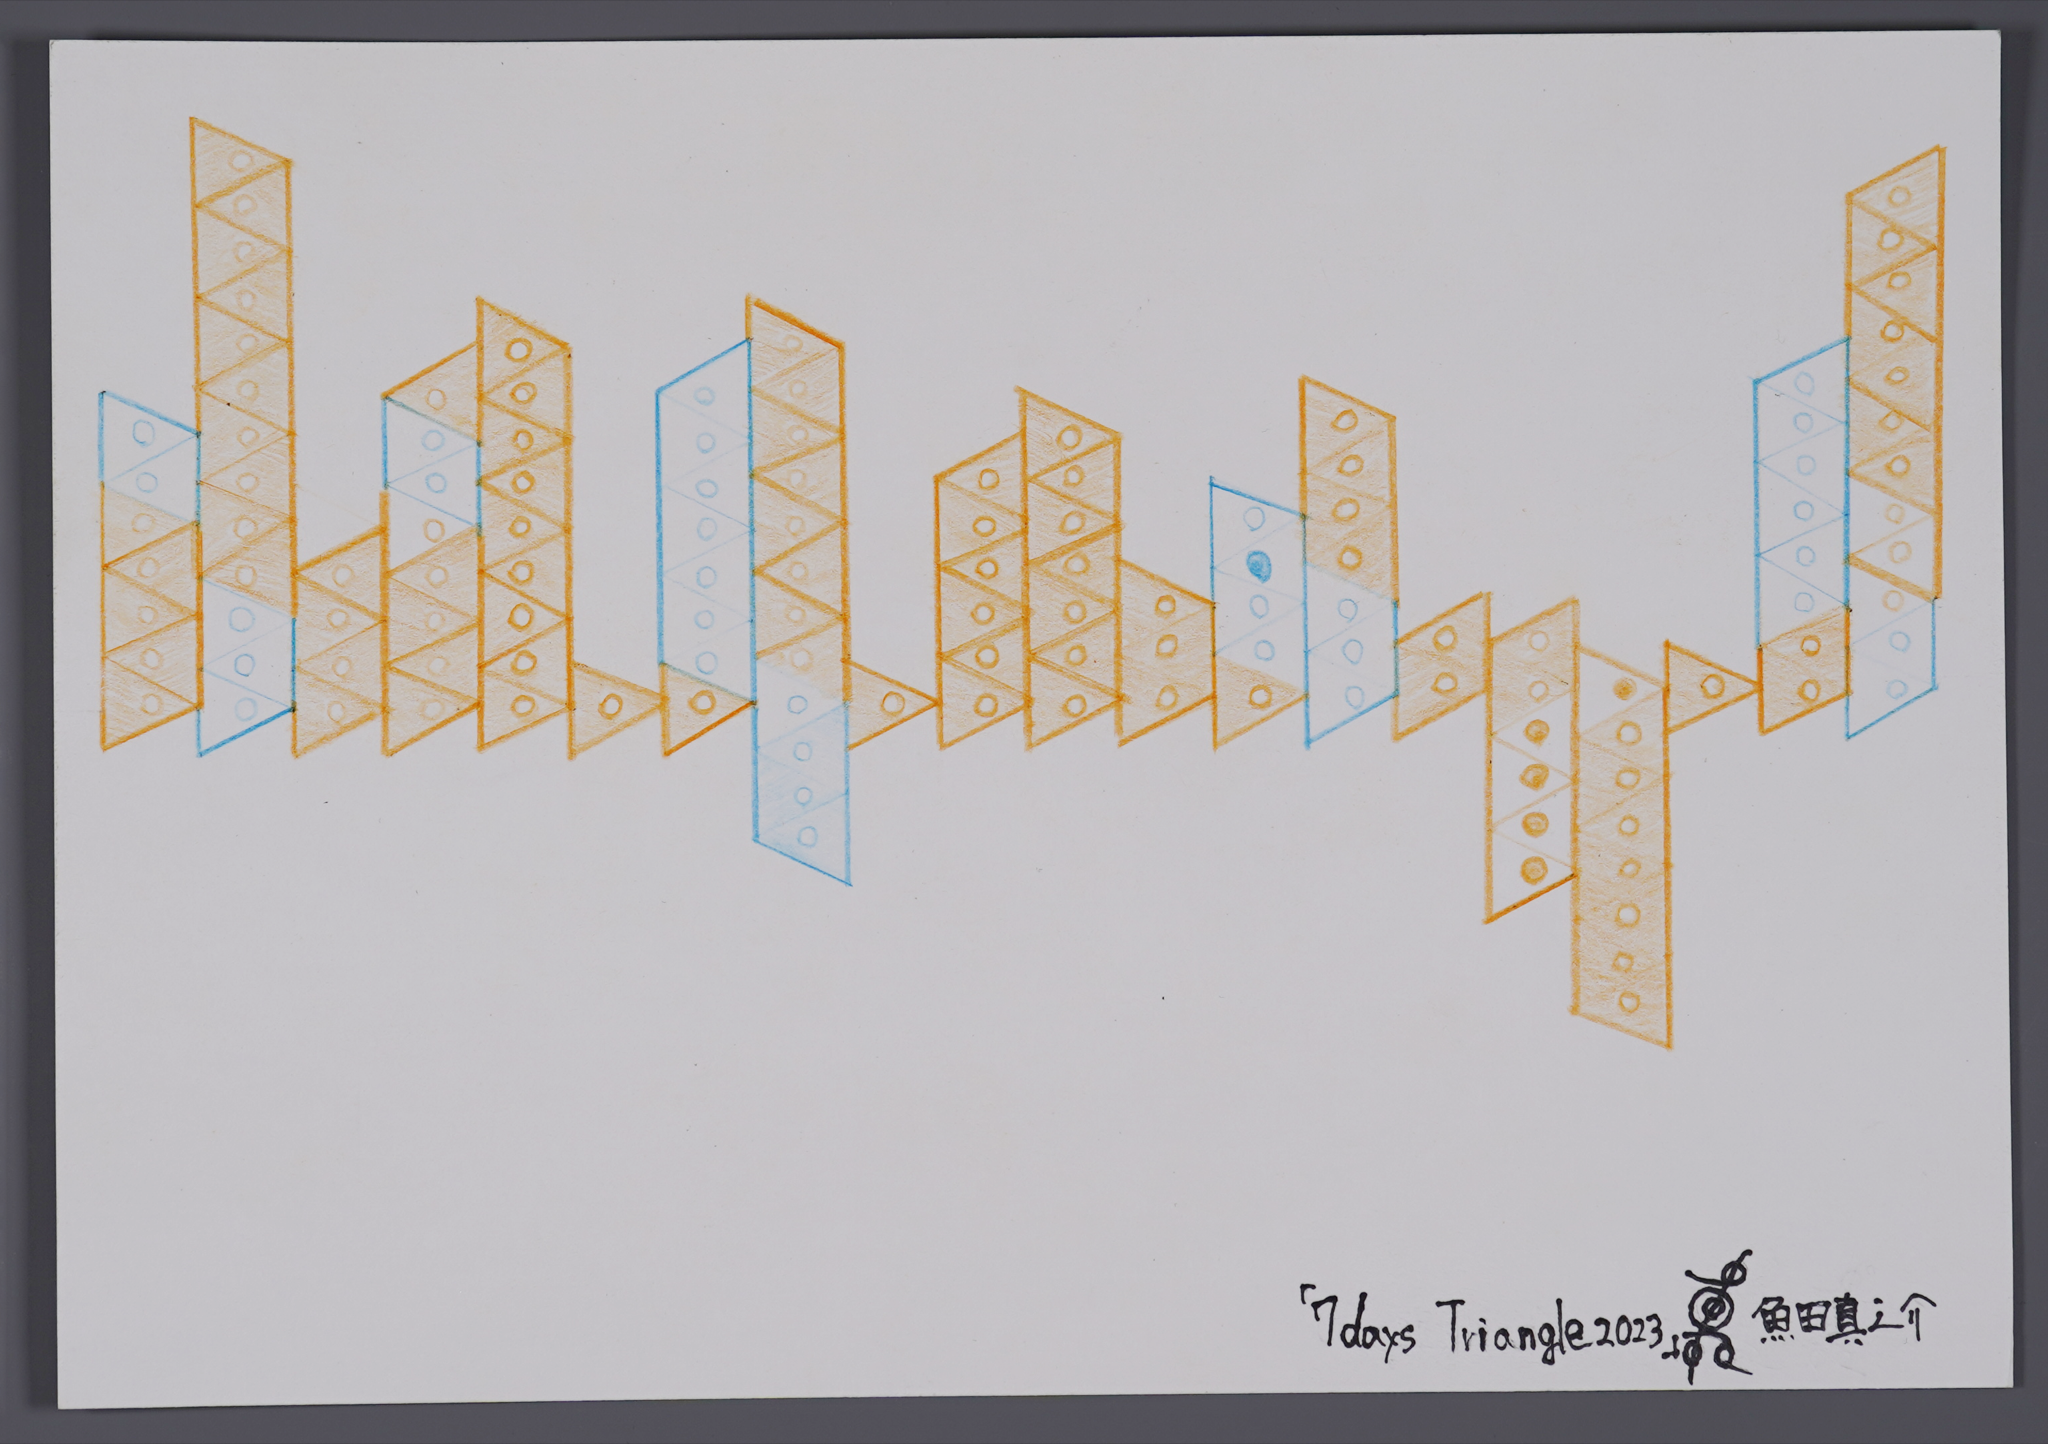 「7days Triangle2023」 魚田真之介